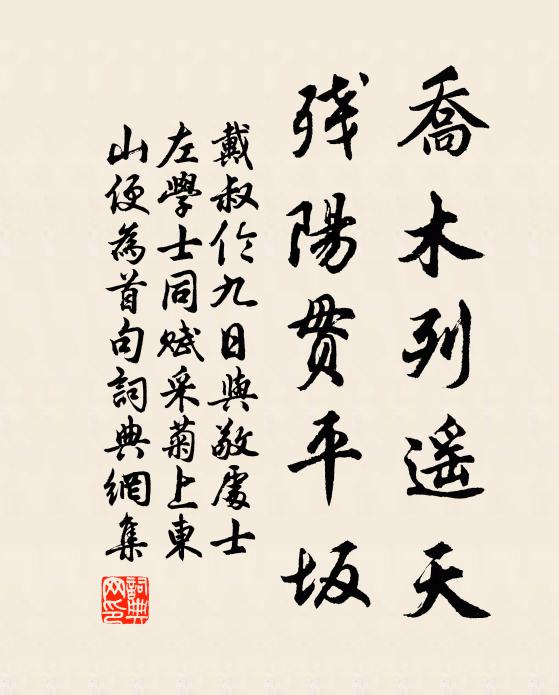 喬木列遥天
残陽貫平坂
戴叔伦九日與敬處士
左學士同赋采菊上東
山便為首句詞典網集
詞典網印